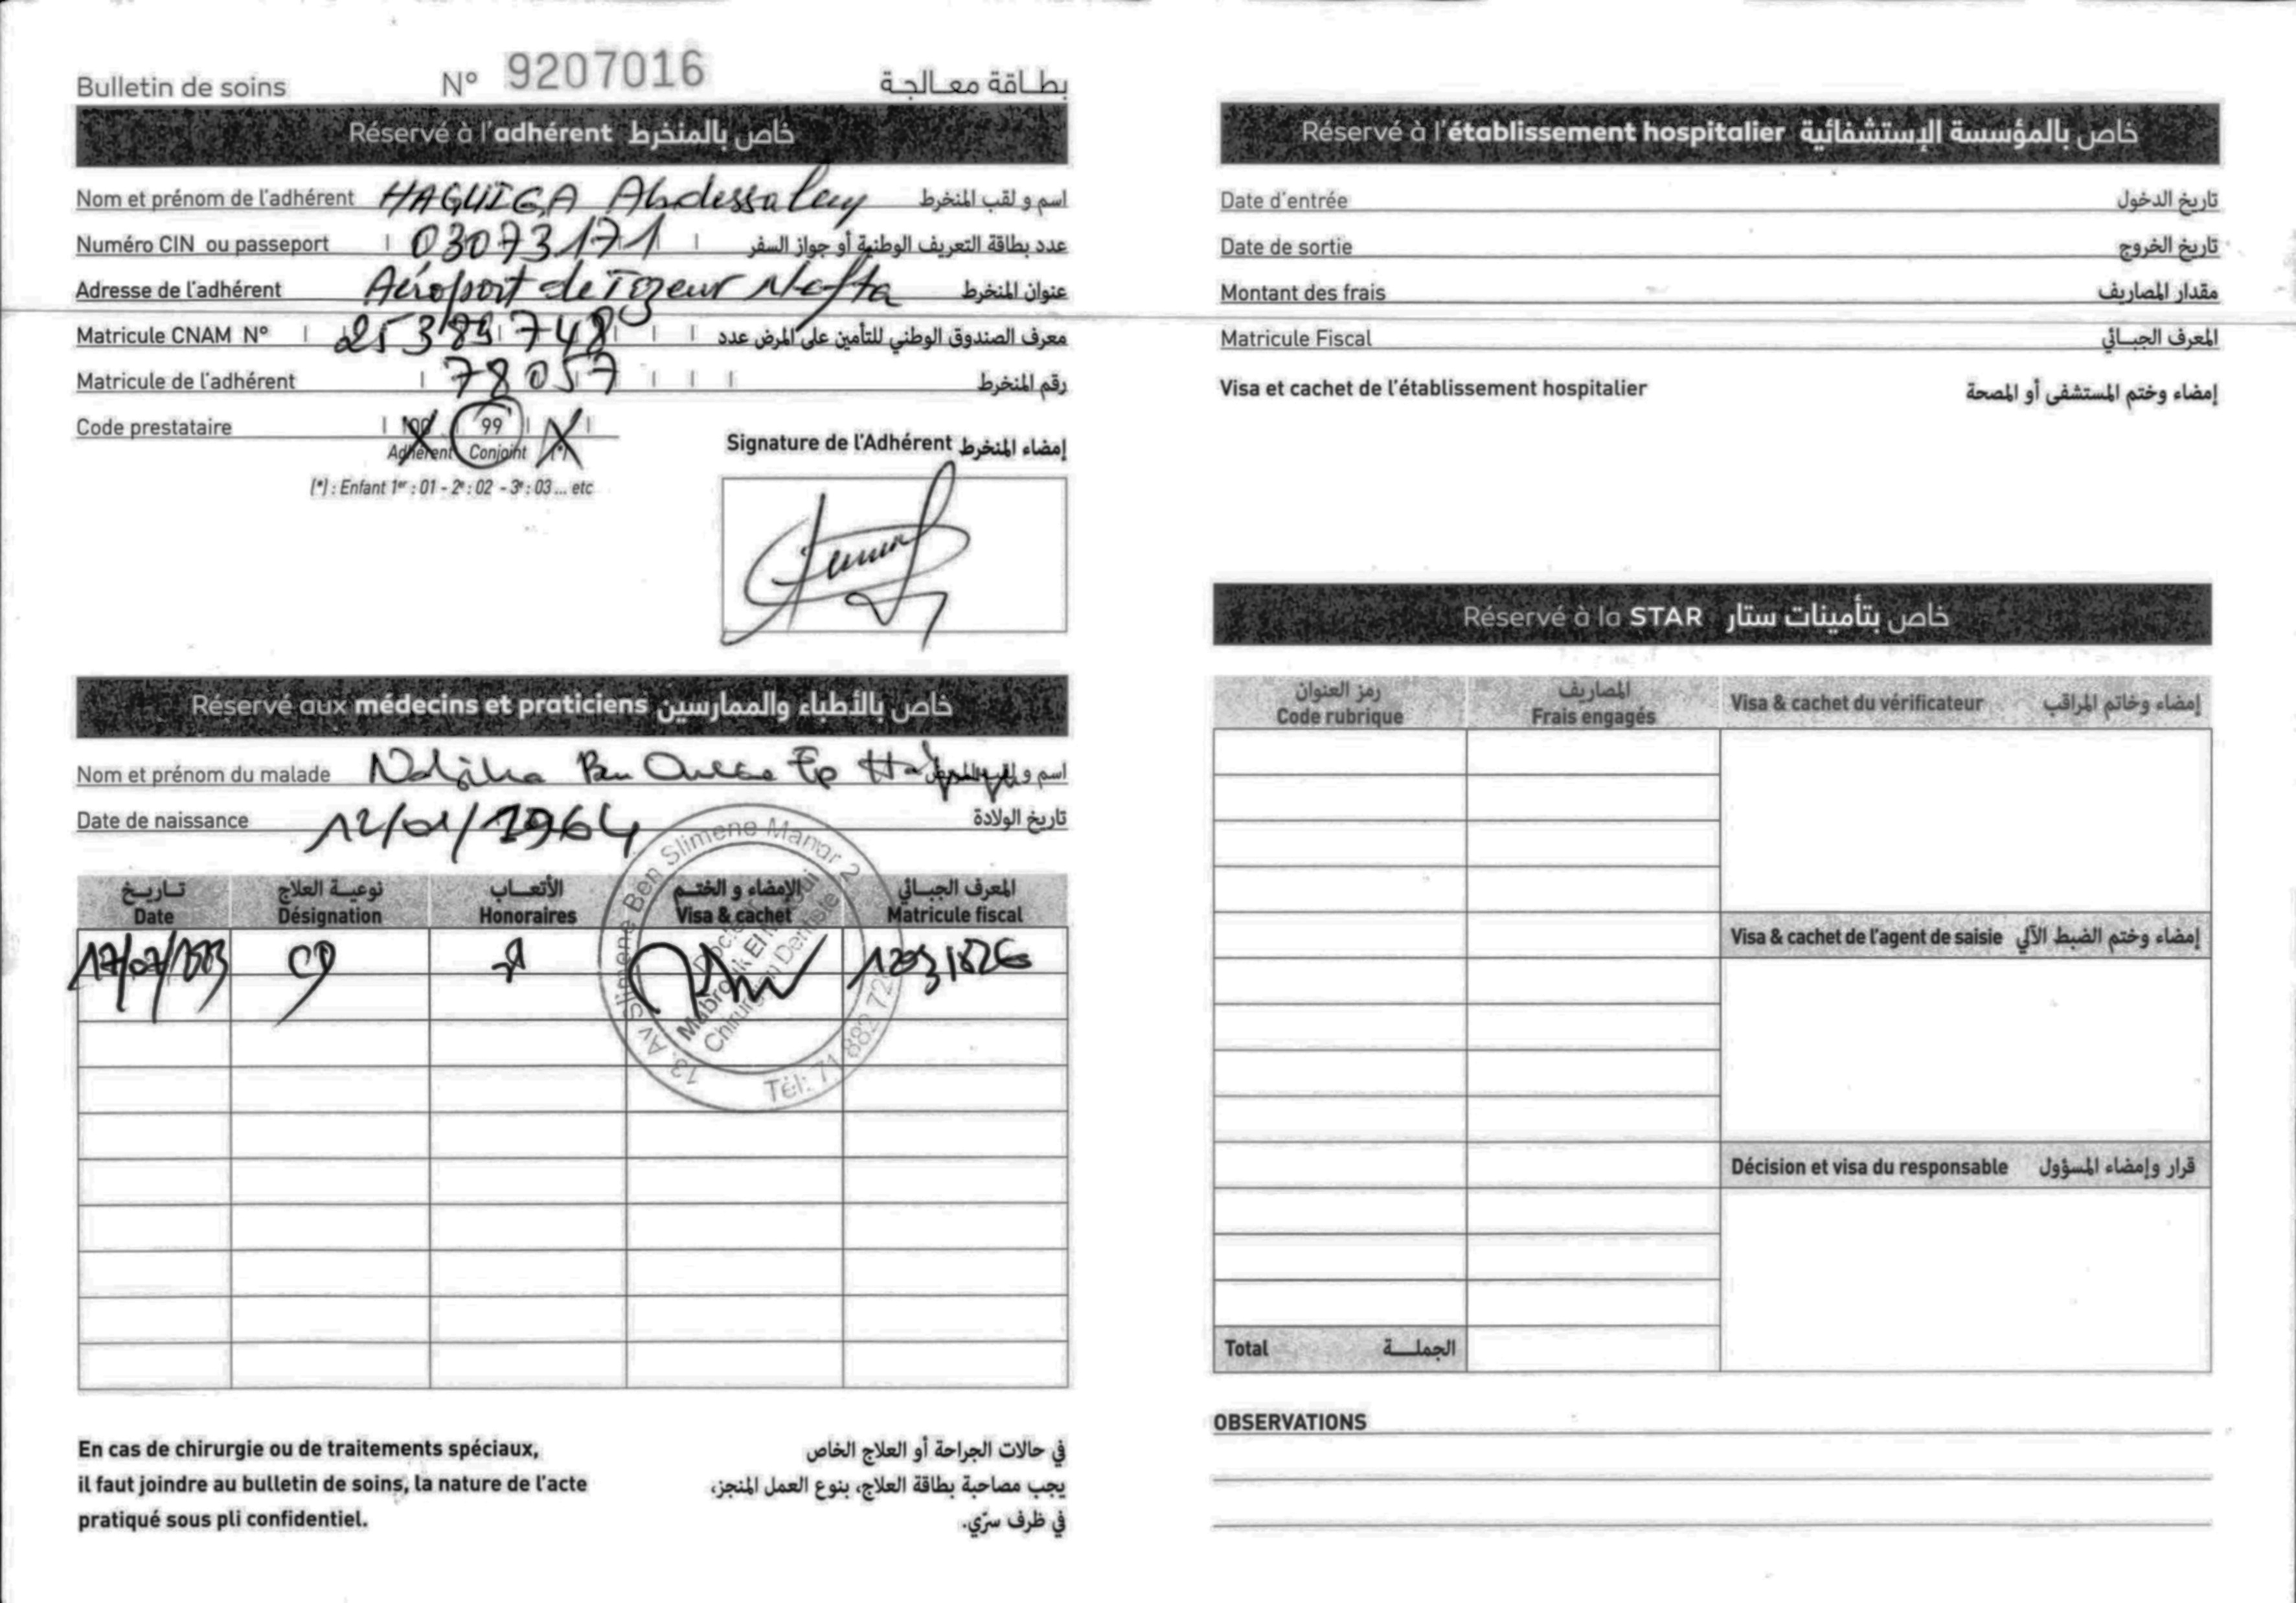 Bulletin de soins N° 9207016 بطاقة معالجة
Réservé à l'adhérent خاص بالمنخرط
Nom et prénom de l'adhérent HAGUIGA Abdessalem اسم و لقب المنخرط
Numéro CIN ou passeport 03073171 عدد بطاقة التعريف الوطنية أو جواز السفر
Adresse de l'adhérent Aéroport de Tozeur Nefta عنوان المنخرط
Matricule CNAM N° 253897480 معرف الصندوق الوطني للتأمين على المرض عدد
Matricule de l'adhérent 78057 رقم المنخرط
Code prestataire 99
Adhérent Conjoint (*)
(*) : Enfant 1er : 01 - 2e : 02 - 3e : 03 ... etc
Signature de l'Adhérent إمضاء المنخرط
Réservé aux médecins et praticiens خاص بالأطباء والممارسين
Nom et prénom du malade Ben Ep اسم و
Date de naissance 12/01/1964 تاريخ الولادة
تاريخ نوعية العلاج الأتعاب الإمضاء و الختم المعرف الجبائي
Date Désignation Honoraires Visa & cachet Matricule fiscal
17/07/ CD
13, Av Slimene Ben Slimene Manar 2
Docteur
Mabrouk El
Chirurgien Dentiste
Tél: 71 882 72
En cas de chirurgie ou de traitements spéciaux,
il faut joindre au bulletin de soins, la nature de l'acte
pratiqué sous pli confidentiel.
في حالات الجراحة أو العلاج الخاص
يجب مصاحبة بطاقة العلاج، بنوع العمل المنجز،
في ظرف سرّي.
Réservé à l'établissement hospitalier خاص بالمؤسسة الإستشفائية
Date d'entrée تاريخ الدخول
Date de sortie تاريخ الخروج
Montant des frais مقدار المصاريف
Matricule Fiscal المعرف الجبائي
Visa et cachet de l'établissement hospitalier إمضاء وختم المستشفى أو المصحة
Réservé à la STAR خاص بتأمينات ستار
رمز العنوان المصاريف
Code rubrique Frais engagés Visa & cachet du vérificateur إمضاء وخاتم المراقب
Visa & cachet de l'agent de saisie إمضاء وختم الضبط الآلي
Décision et visa du responsable قرار وإمضاء المسؤول
Total الجملة
OBSERVATIONS